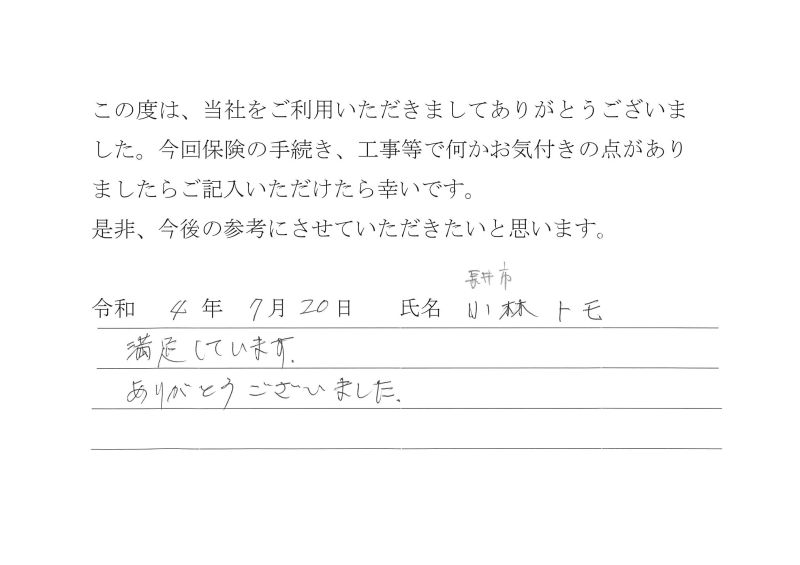 この度は、当社をご利用いただきましてありがとうございま
した。今回保険の手続き、工事等で何かお気付きの点があり
ましたらご記入いただけたら幸いです。
是非、今後の参考にさせていただきたいと思います。
長井市
令和 4 年 7月 20日 氏名 小林 トモ
満足しています.
ありがとうございました.